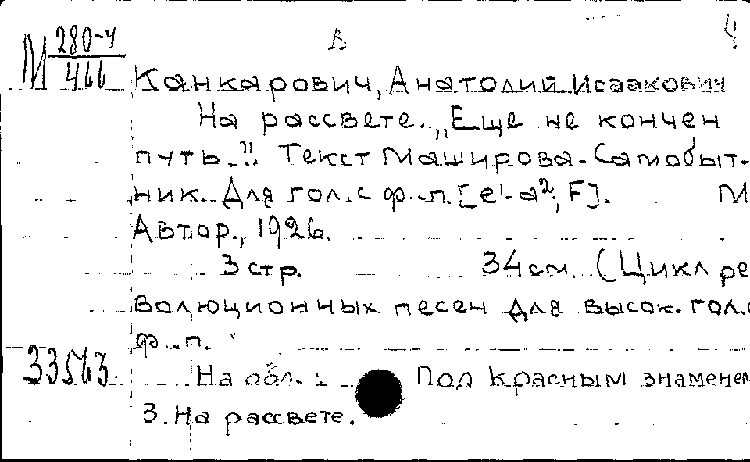 В 4
М 280-4
466
Канкарович, Анатолий Исаакович
На рассвете. „Еще не кончен
путь..." Текст Маширова-Самобыт-
ник. Для гол. с ф.-п. [e¹-a², F]. М
Автор, 1926.
3 стр. 34 см (Цикл ре
волюционных песен для высок. гол. с
ф.-п.
33563 На обл.: Под красным знаменем
3. На рассвете.